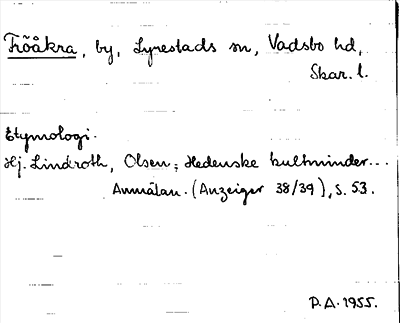 Fröåkra, by, Lyrestads sn, Vadsbo hd,
Skar. l.
Etymologi.
Hj. Lindroth, Olsen; Hedenske kultminder...
Anmälan. (Anzeiger 38/39), s. 53.
P.A. 1955.